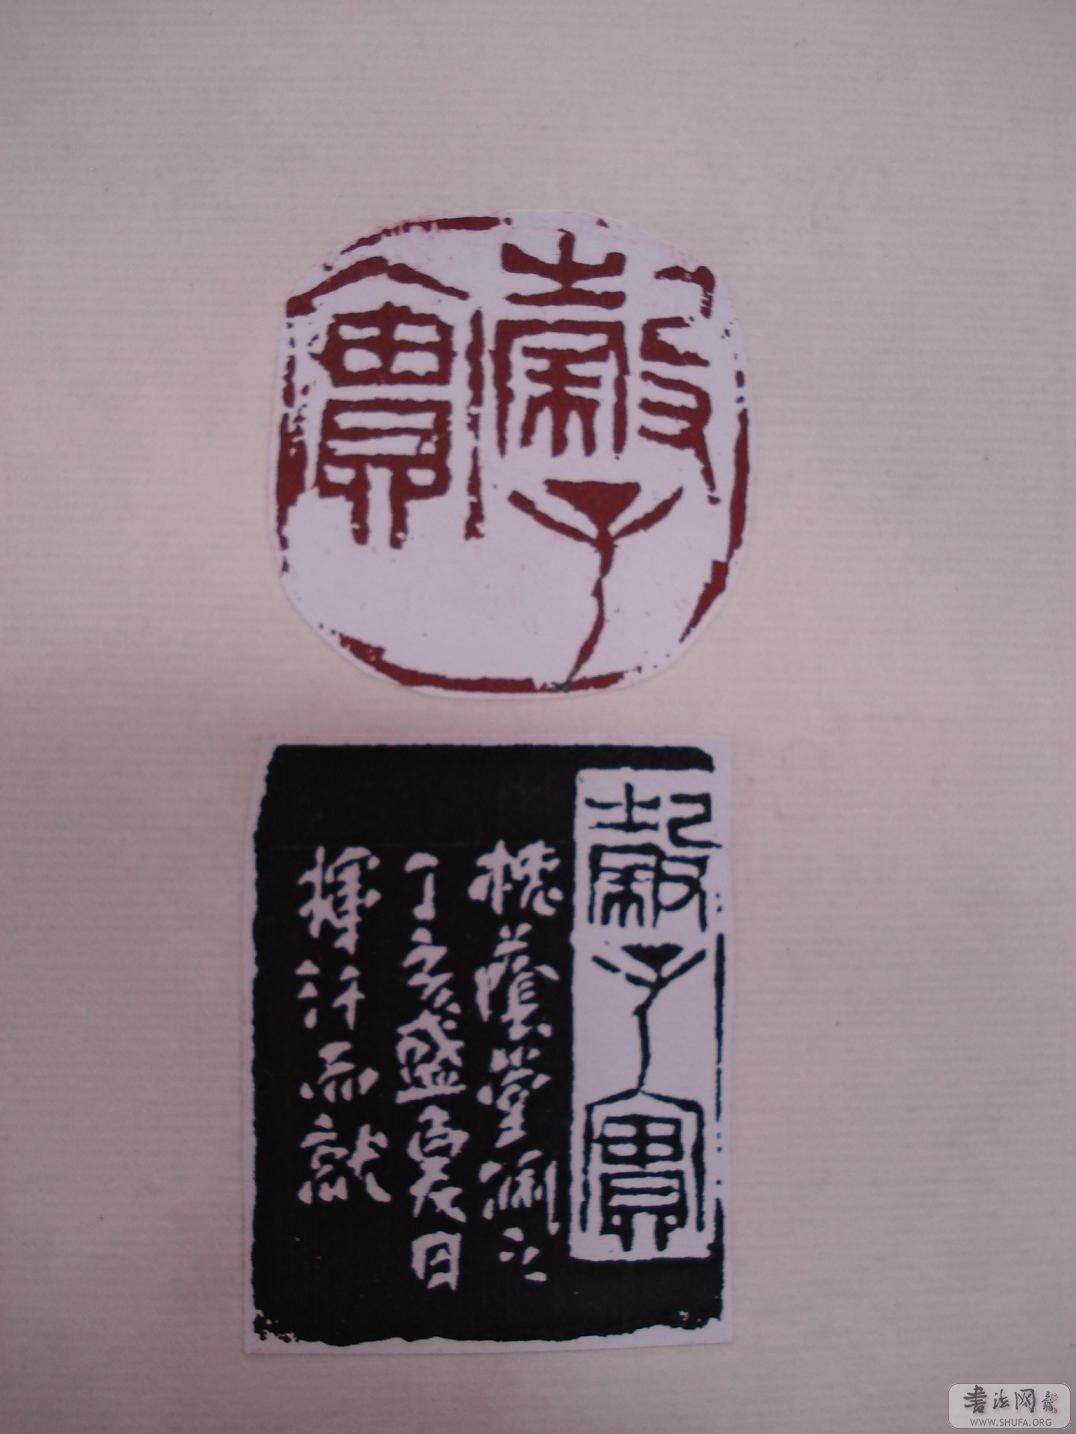 穀子
實
穀子實
槐蔭堂制之
丁亥盛夏日
揮汗而就
書法网
WWW.SHUFA.ORG